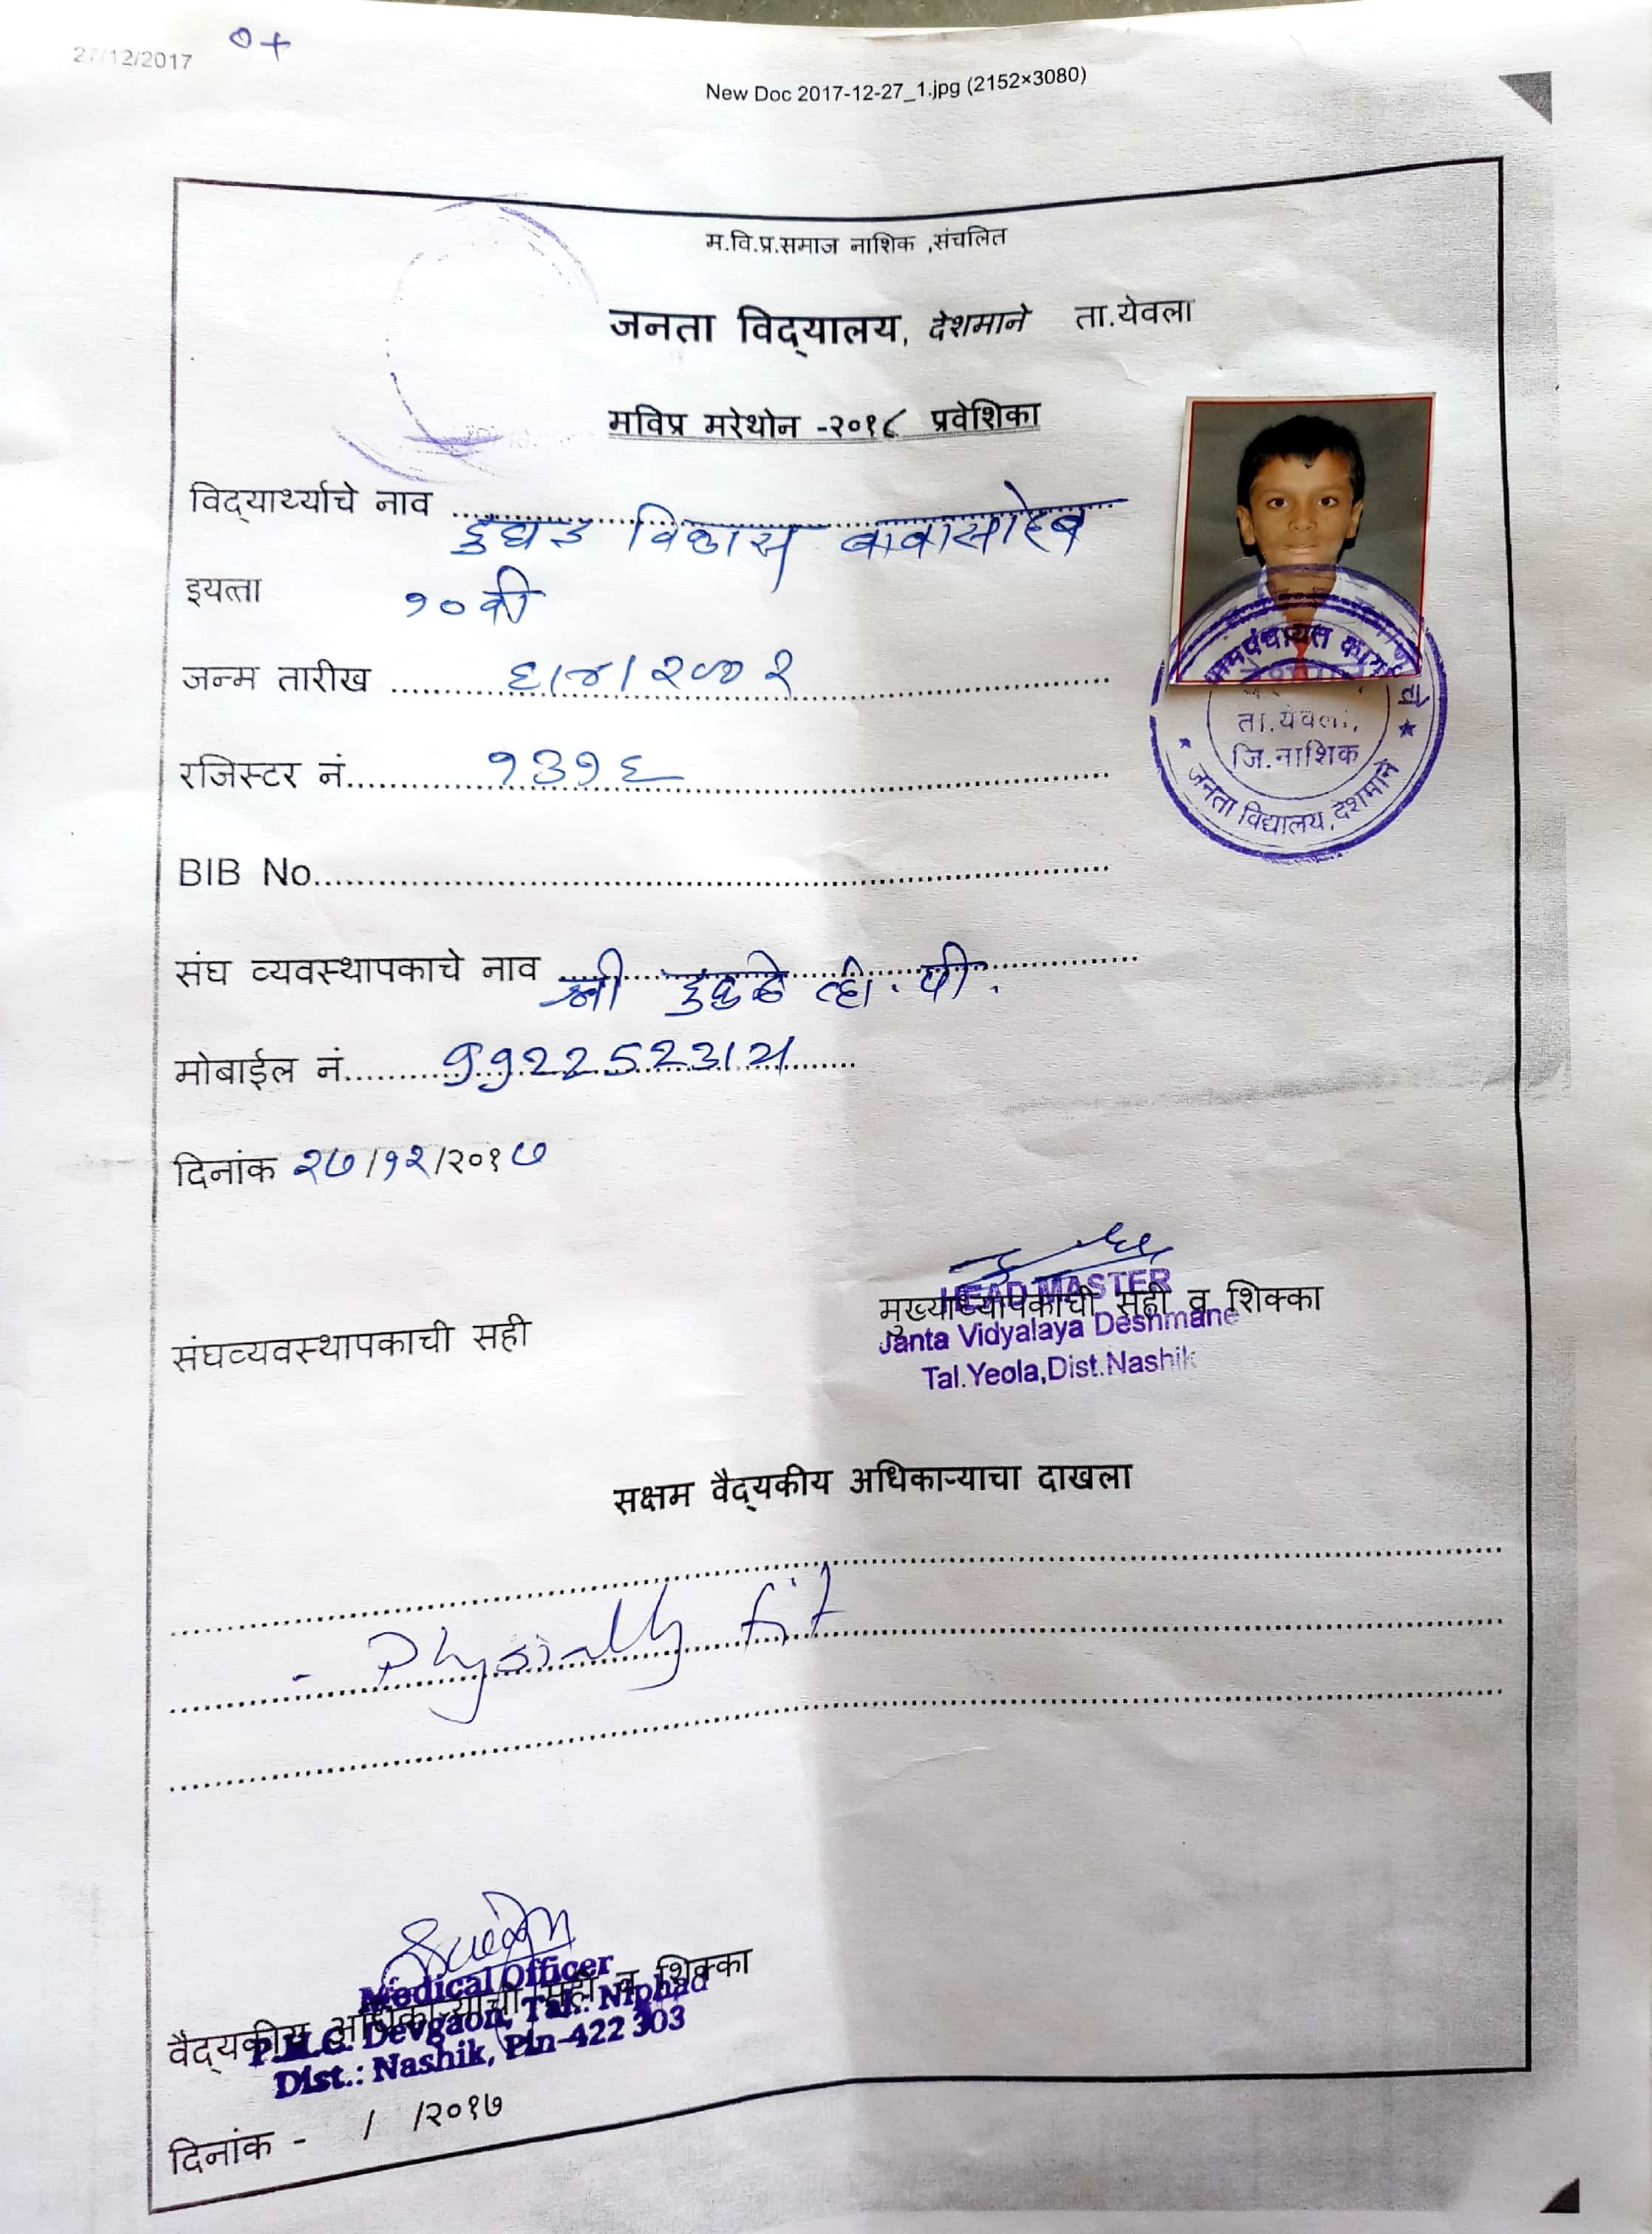 27/12/2017
O+
New Doc 2017-12-27_1.jpg (2152×3080)
म.वि.प्र.समाज नाशिक ,संचलित
जनता विद्यालय, देशमाने ता.येवला
मविप्र मरेथोन -२०१८ प्रवेशिका
विद्यार्थ्याचे नाव दुघड विलास बाबासाहेब
इयत्ता १०वी
जन्म तारीख
रजिस्टर नं. १३१६
ता.येवला,
जि.नाशिक
जनता विद्यालय, देशमाने
BIB No.
संघ व्यवस्थापकाचे नाव श्री व्ही. पी.
मोबाईल नं.
दिनांक २७/१२/२०१७
HEAD MASTER
मुख्याध्यापकाची सही व शिक्का
Janta Vidyalaya Deshmane
Tal.Yeola,Dist.Nashik
संघव्यवस्थापकाची सही
सक्षम वैद्यकीय अधिकाऱ्याचा दाखला
- Physially fit
Medical Officer
वैद्यकीय अधिकाऱ्याची सही व शिक्का
P.H.C. Devgaon, Tal.: Niphad
Dist.: Nashik, Pin-422 303
दिनांक - / /२०१७